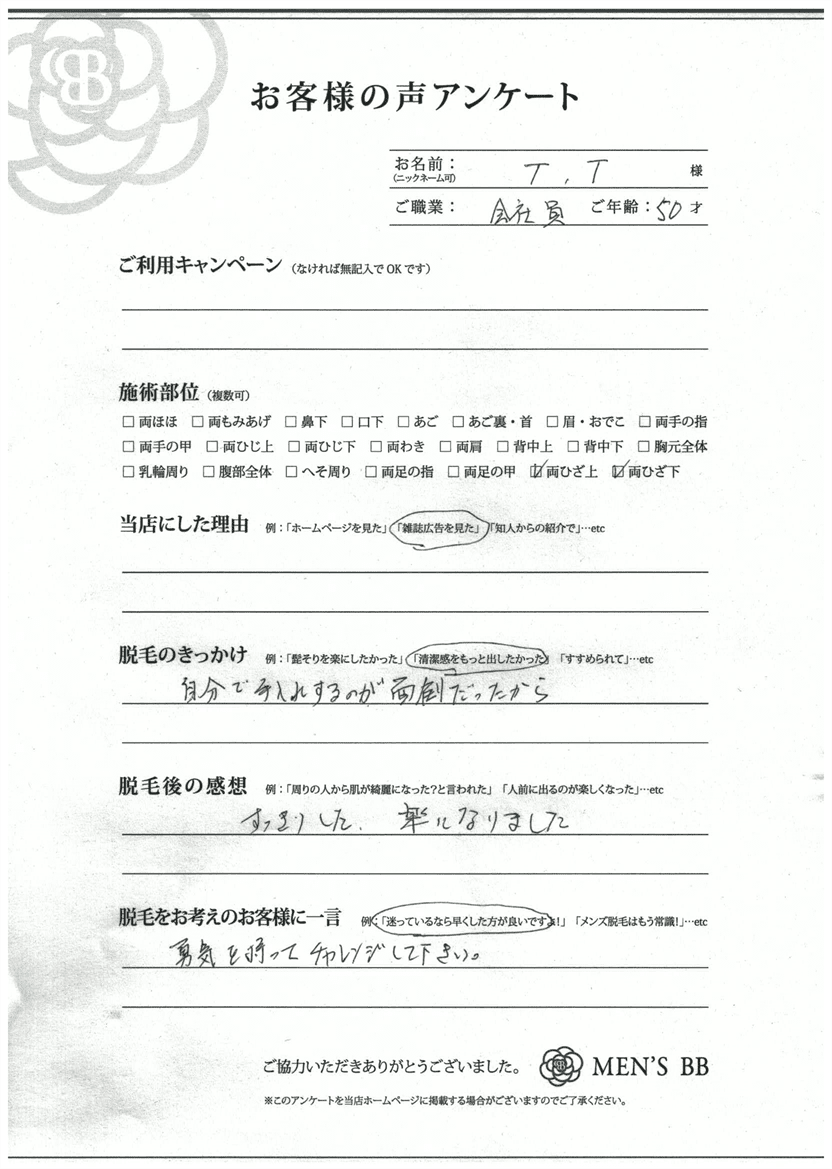 BB
お客様の声アンケート
お名前： T, T 様
(ニックネーム可)
ご職業： 会社員 ご年齢：50才
ご利用キャンペーン (なければ無記入でOKです)
施術部位 (複数可)
□両ほほ □両もみあげ □鼻下 □口下 □あご □あご裏・首 □眉・おでこ □両手の指
□両手の甲 □両ひじ上 □両ひじ下 □両わき □両肩 □背中上 □背中下 □胸元全体
□乳輪周り □腹部全体 □へそ周り □両足の指 □両足の甲 ☑両ひざ上 ☑両ひざ下
当店にした理由 例：「ホームページを見た」「雑誌広告を見た」「知人からの紹介で」…etc
脱毛のきっかけ 例：「髭そりを楽にしたかった」「清潔感をもっと出したかった」「すすめられて」…etc
自分で手入れするのが面倒だったから
脱毛後の感想 例：「周りの人から肌が綺麗になった？と言われた」「人前に出るのが楽しくなった」…etc
すっきりした、楽になりました
脱毛をお考えのお客様に一言 例：「迷っているなら早くした方が良いですよ！」「メンズ脱毛はもう常識！」…etc
勇気を持ってチャレンジして下さい。
ご協力いただきありがとうございました。 MEN'S BB
※このアンケートを当店ホームページに掲載する場合がございますのでご了承ください。